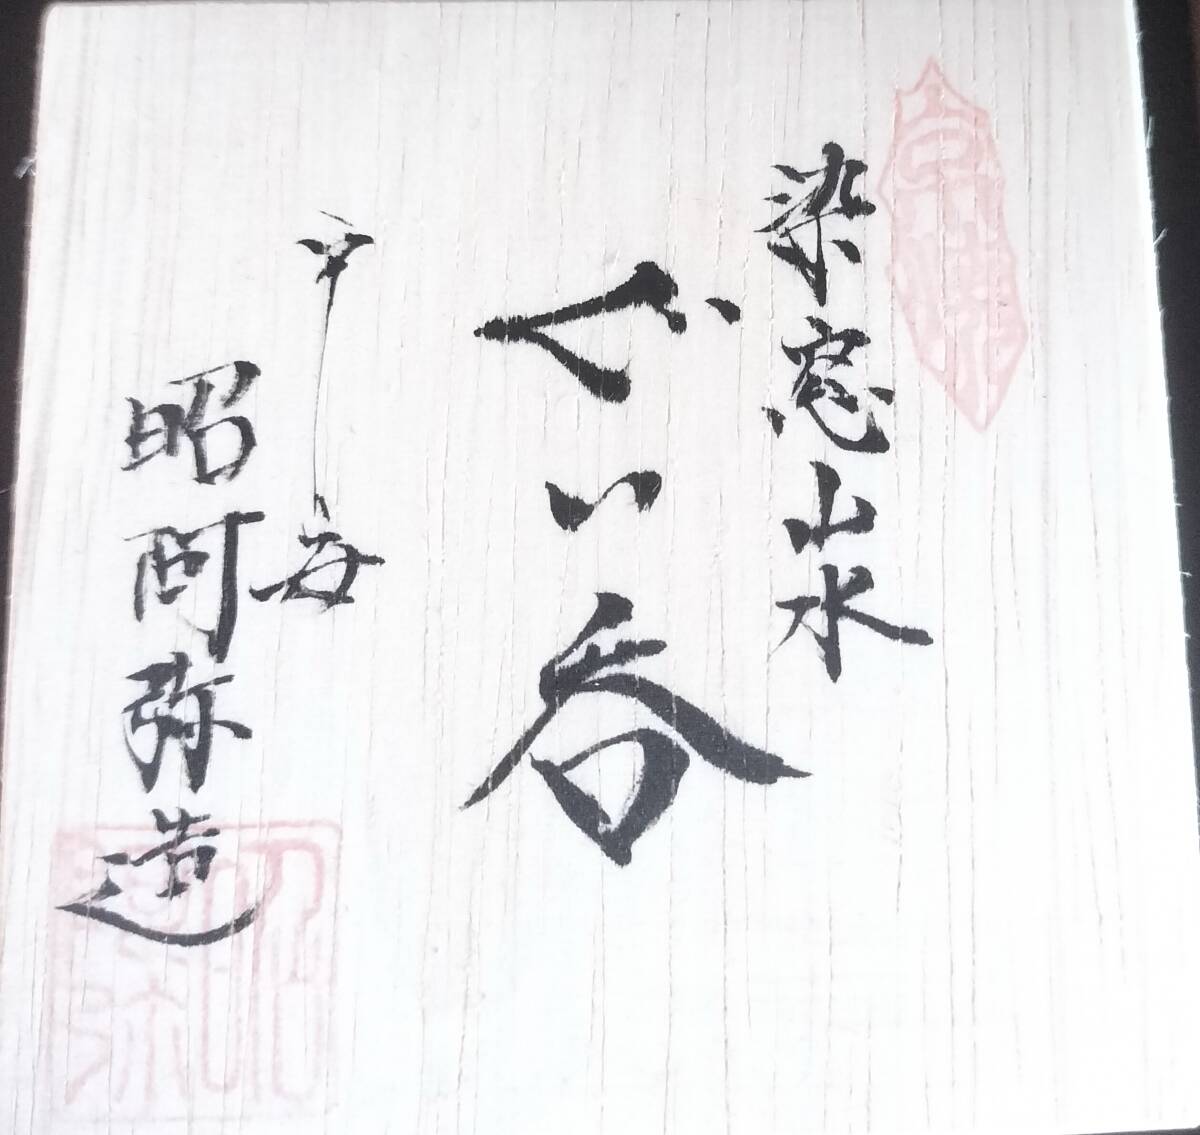 染窓山水
ぐい呑
平安
昭阿弥造